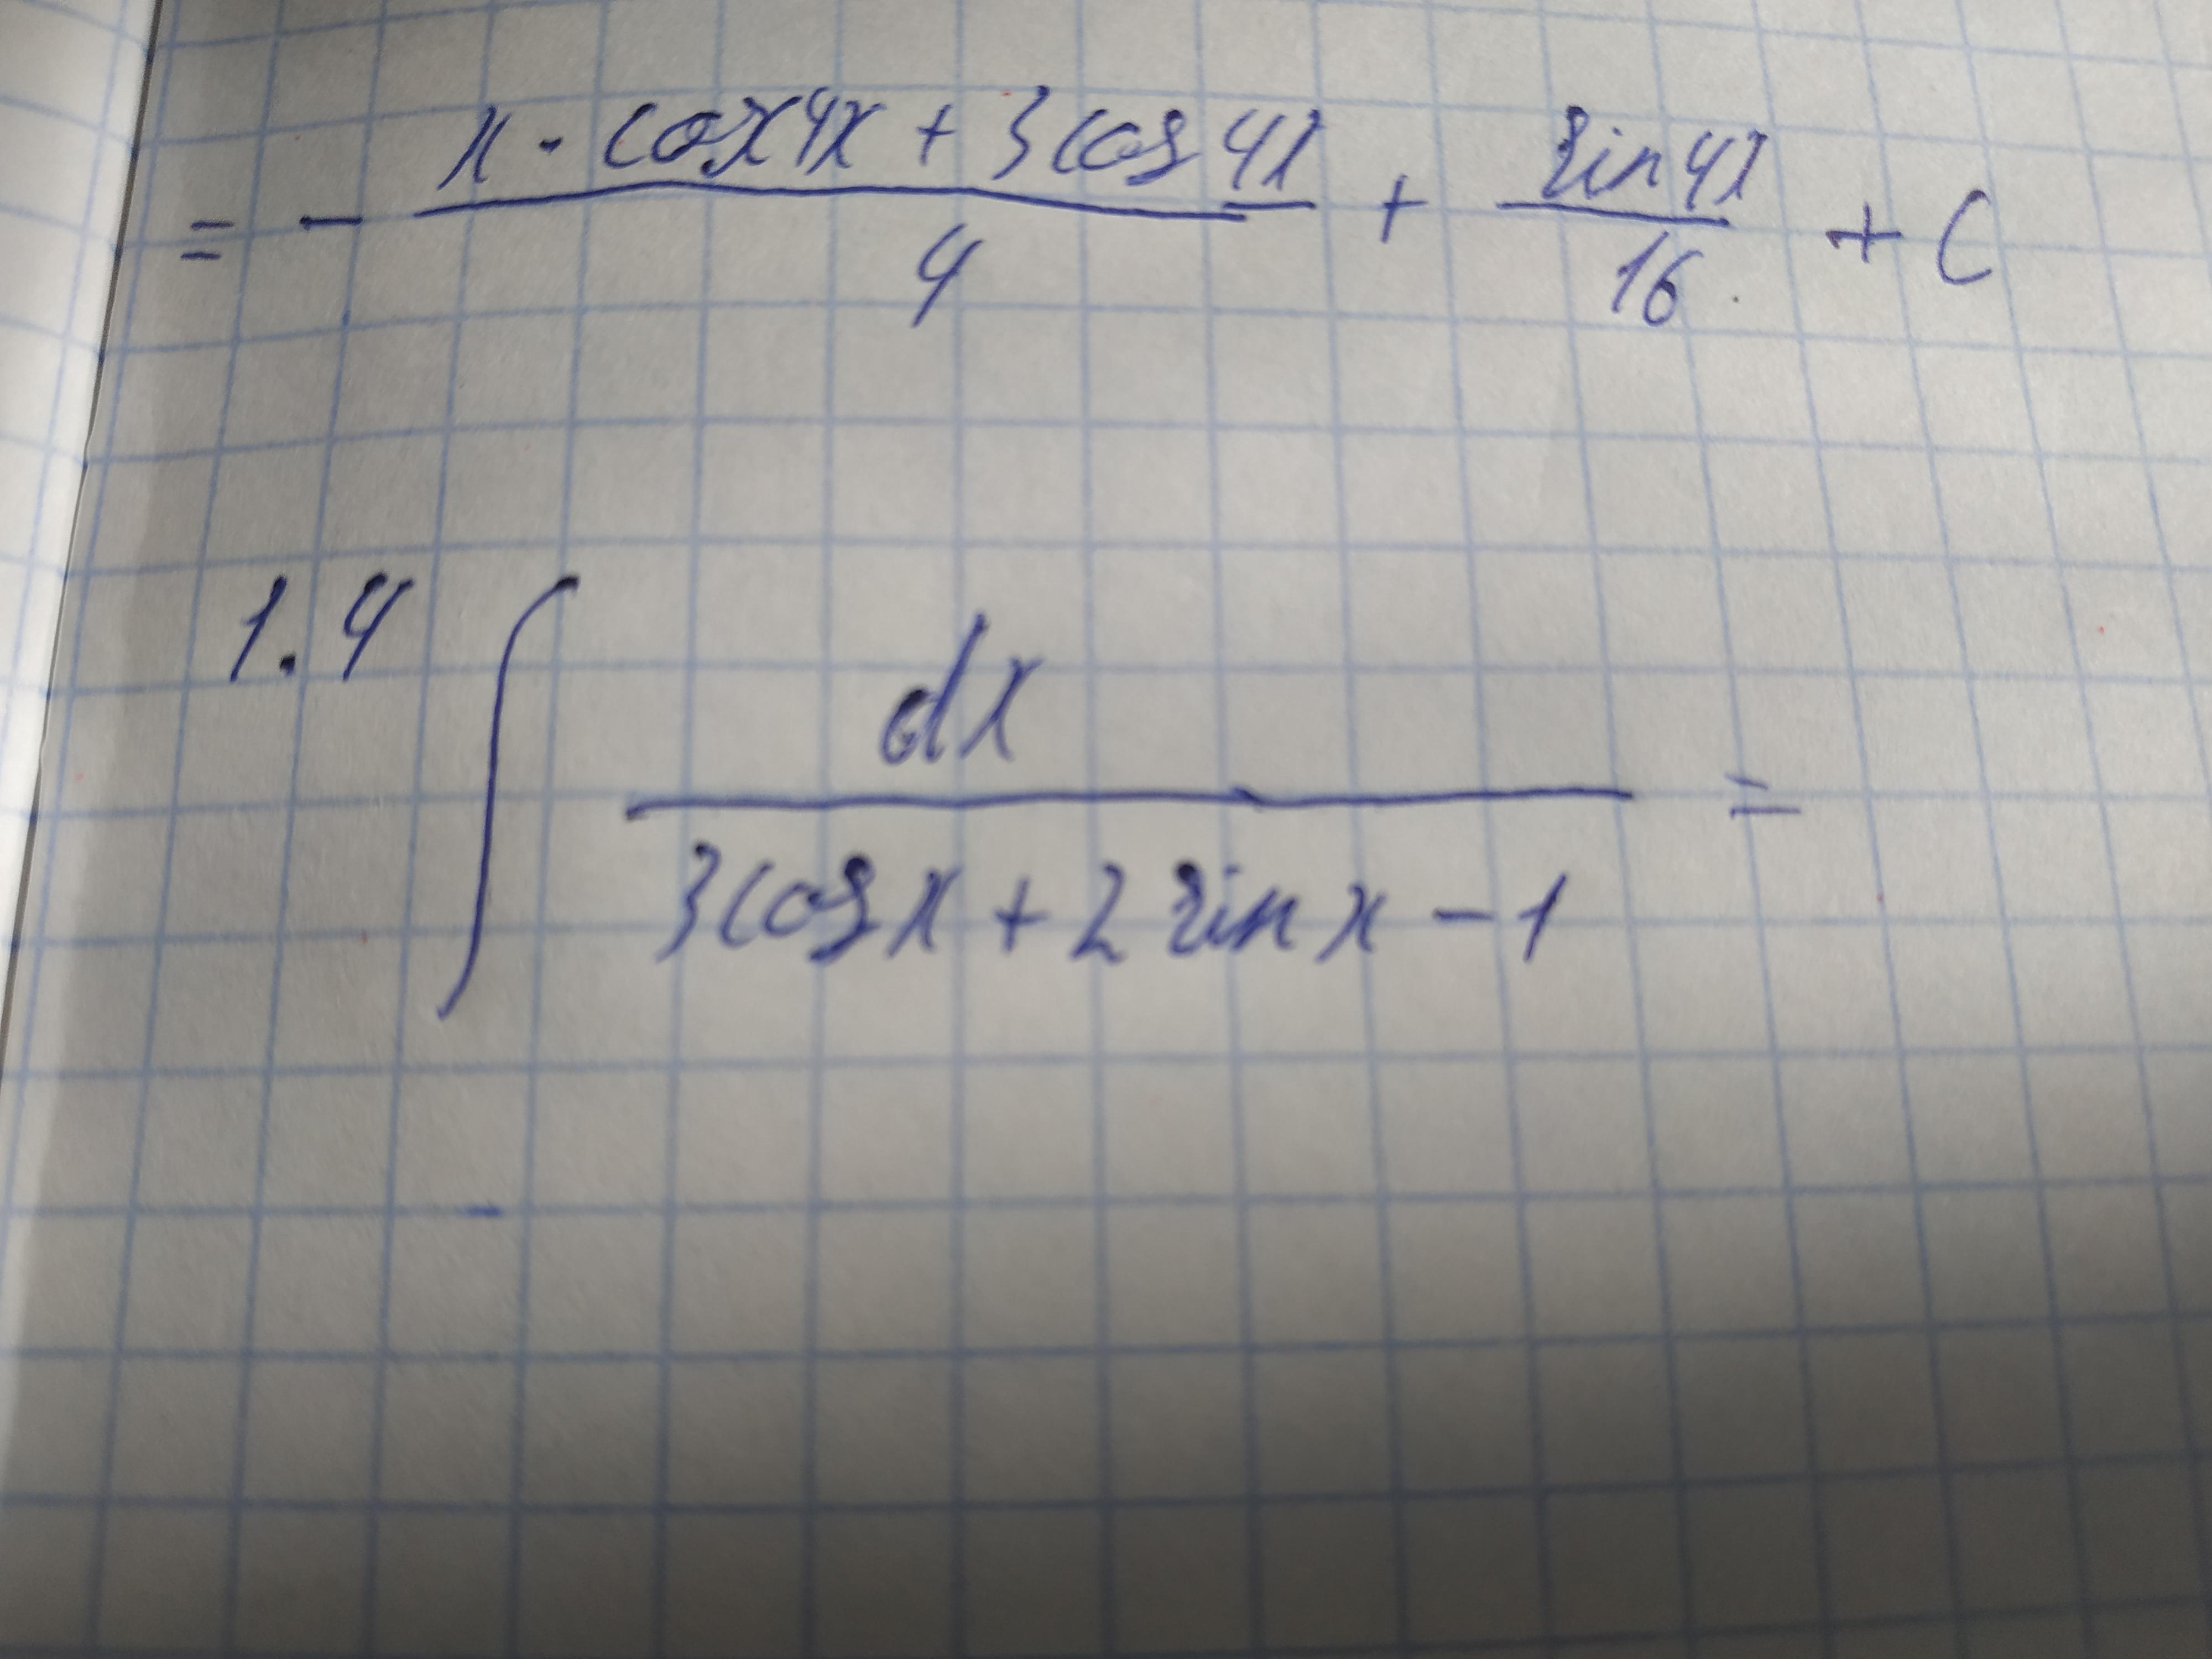 = - (x · cox4x + 3cos4x)/4 + sin4x/16 + C
1.4 ∫ dx/(3cosx + 2sinx - 1) =